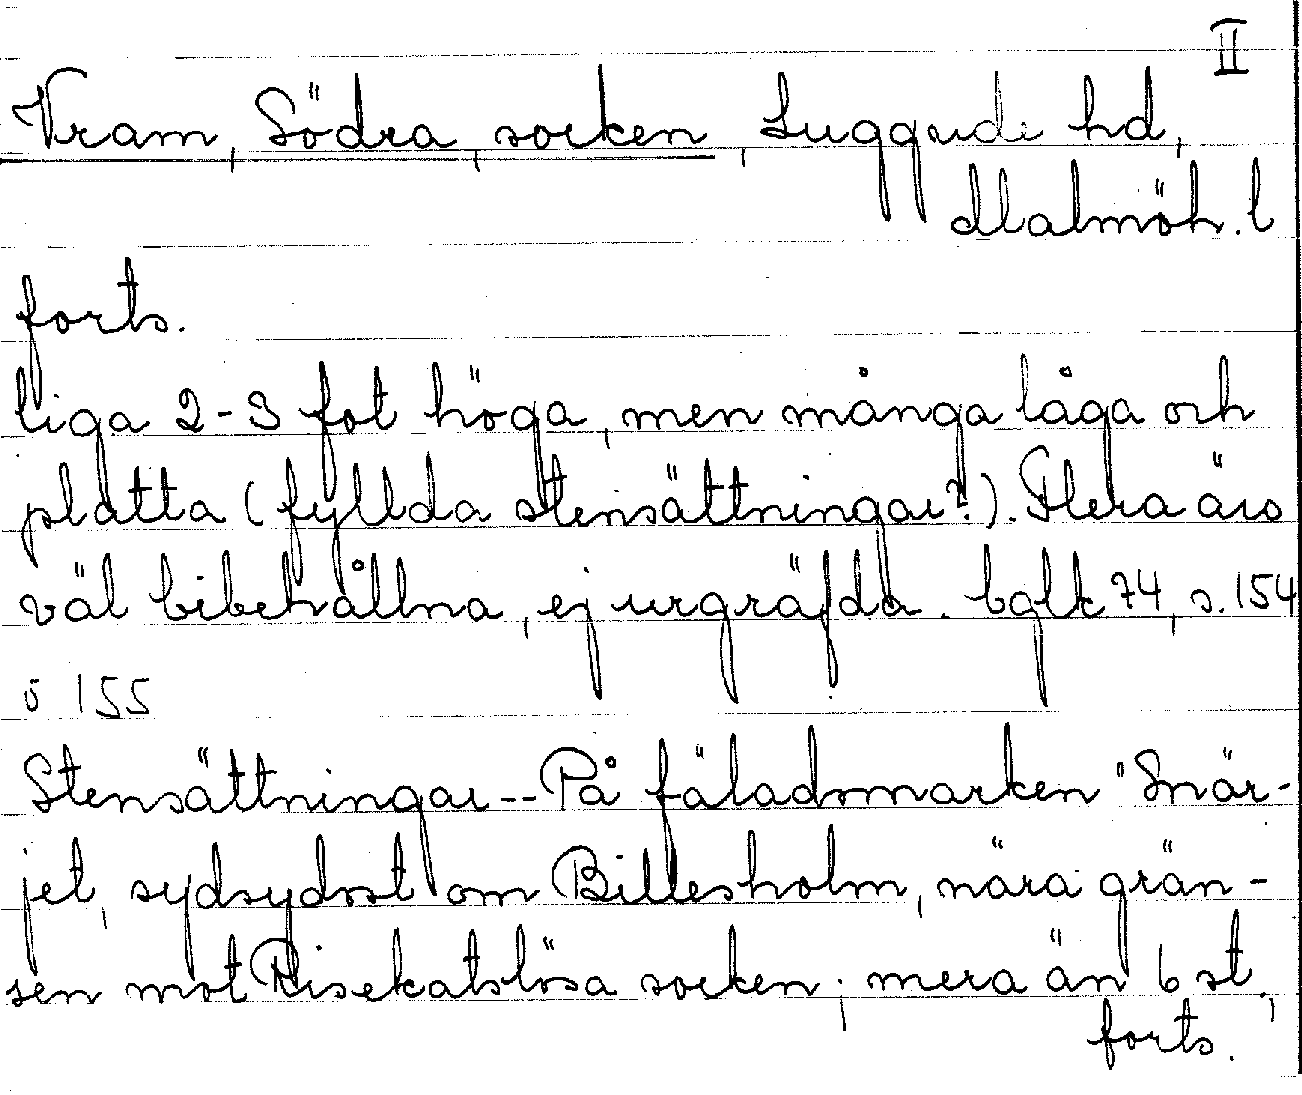 II
Vram, Södra, socken, Luggude hd,
Malmöh. l
forts.
liga 2-3 fot höga, men många låga och
platta (fyllda stensättningar?). Flera äro
väl bibehållna, ej urgräfda. bqlk 74, s. 154
o 155
Stensättningar -- På fäladsmarken "Snär-
jet, sydsydost om Billesholm, nära grän-
sen mot Risekatslösa socken; mera än 6 st.,
forts.